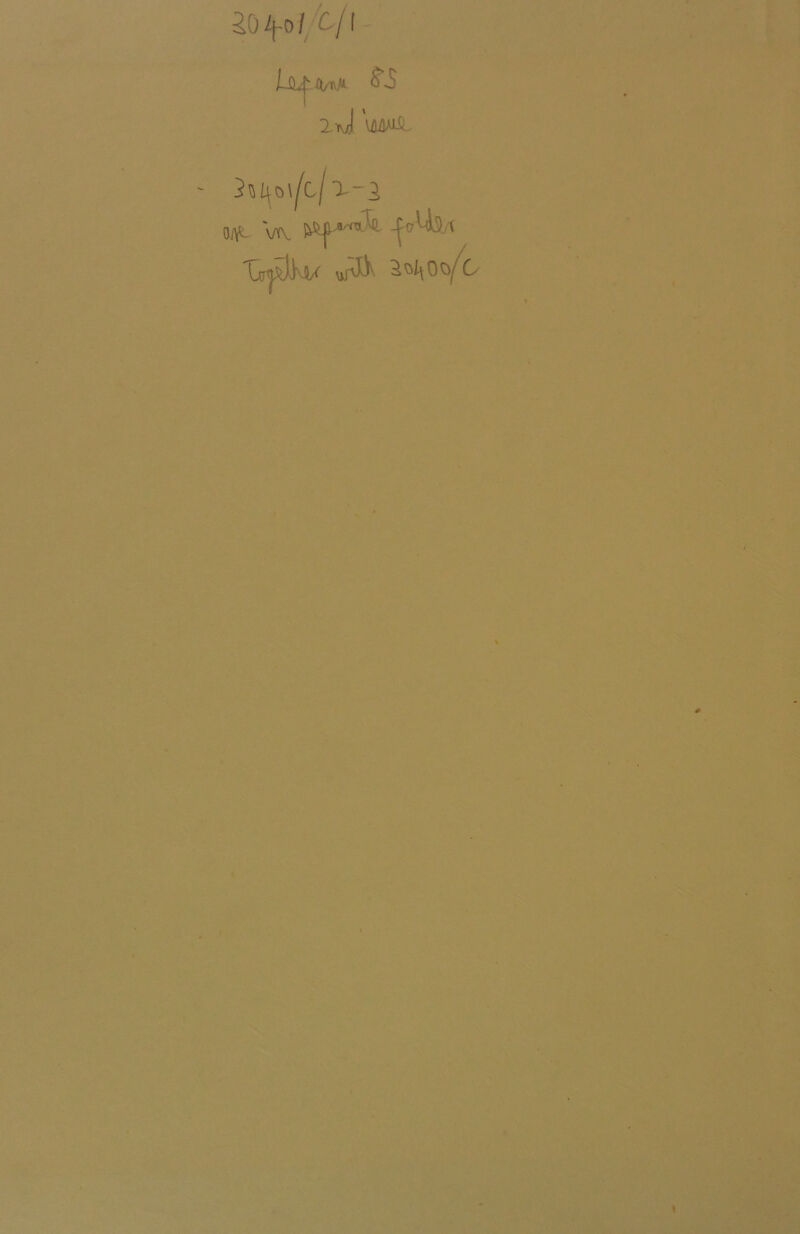 30401/C/1
Lefanu 85
2nd issue
- 30401/C/2-3
are in separate folder
Together with 30400/C